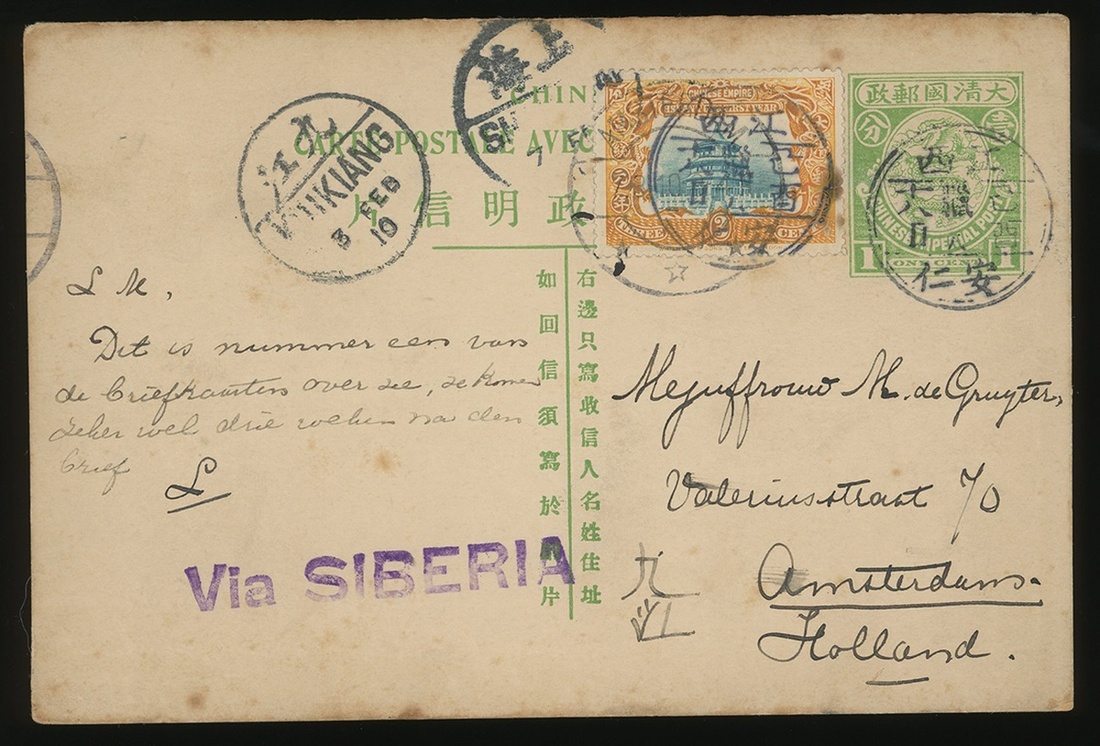 CHIN
CARTE POSTALE AVEC
片信明政
大清國郵政
壹分
CHINESE IMPERIAL POST
1 ONE CENT 1
CHINESE EMPIRE
FIRST YEAR
2 CEN
上海
SH
7
九江
KIUKIANG
3 FEB
10
江西
江西
十八日
安仁
右邊只寫收信人名姓住址
如回信須寫於 片
L M,
Dit is nummer een van
de briefkaarten over zee, ze komen
zeker wel drie weken na den
brief
L
Via SIBERIA
Mejuffrouw M. de Gruyter,
Valeriusstraat 70
Amsterdam.
Holland.